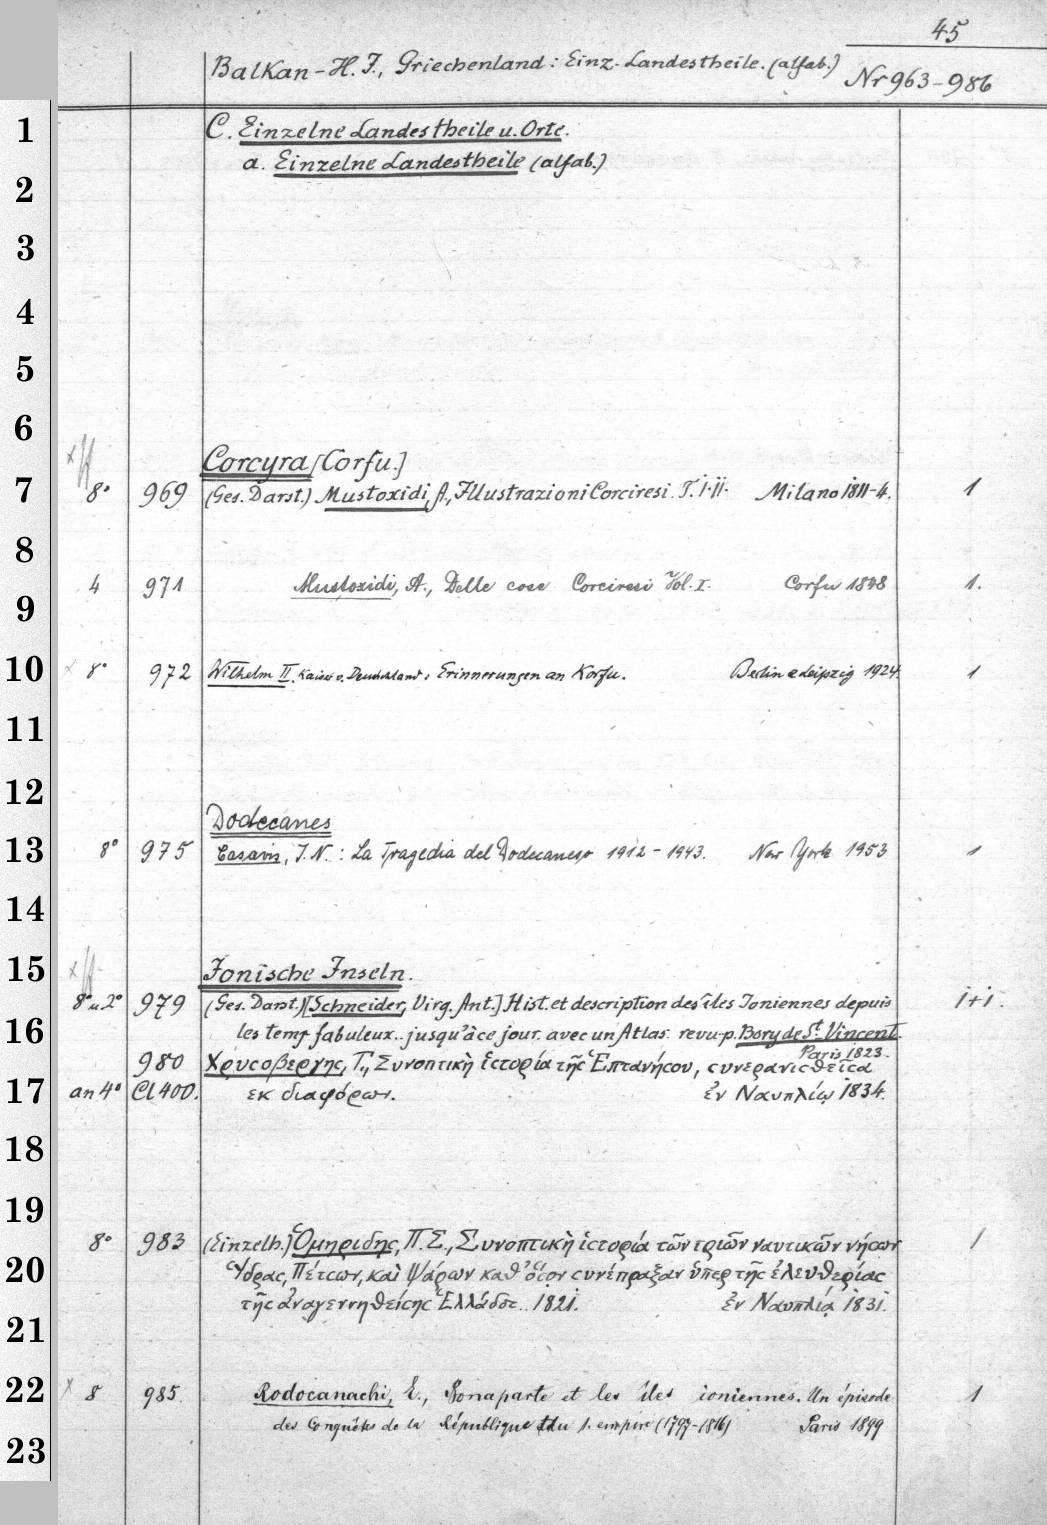 45
Balkan-H. I., Griechenland: Einz. Landestheile. (alfab.)
Nr 963-986
1
C. Einzelne Landestheile u. Orte.
a. Einzelne Landestheile (alfab.)
2
3
4
5
6
Corcyra [Corfu.]
7 8° 969 (Ges. Darst.) Mustoxidi, A., Illustrazioni Corciresi. T. I-II. Milano 1811-4. 1
8
4 971 Mustoxidi, A., Delle cose Corciresi Vol. I. Corfu 1848 1.
9
10 8° 972 Wilhelm II, Kaiser v. Deutschland, Erinnerungen an Korfu. Berlin e Leipzig 1924. 1
11
12
Dodecanes
13 8° 975 Casavis, J. N.: La Tragedia del Dodecaneso 1912-1943. New York 1953 1
14
15 Ionische Inseln.
8° u. 2° 979 (Ges. Darst.) [Schneider, Virg. Ant.] Hist. et description des îles Ioniennes depuis 1+1.
16 les temps fabuleux.. jusqu'à ce jour. avec un Atlas. revu p. Bory de St. Vincent.
Paris 1823.
980 Χρυσοβεργης, Γ., Συνοπτικὴ ἱστορία τῆς Ἑπτανήσου, συνερανισθεῖσα
17 an 4° Cl 400. εκ διαφόρων. ἐν Ναυπλίῳ 1834.
18
19
8° 983 (Einzelh.) Ὁμηριδης, Π. Σ., Συνοπτικὴ ἱστορία τῶν τριῶν ναυτικῶν νήσων 1
20 Ὕδρας, Πέτσων, καὶ Ψάρων καθ' ὅσον συνέπραξαν ὑπερ τῆς ἐλευθερίας
τῆς ἀναγεννηθείσης Ἑλλάδος.. 1821. ἐν Ναυπλίᾳ 1831.
21
22 8 985 Rodocanachi, E., Bonaparte et les îles ioniennes. Un épisode 1
des Conquêtes de la République du 1. empire (1797-1816) Paris 1899
23